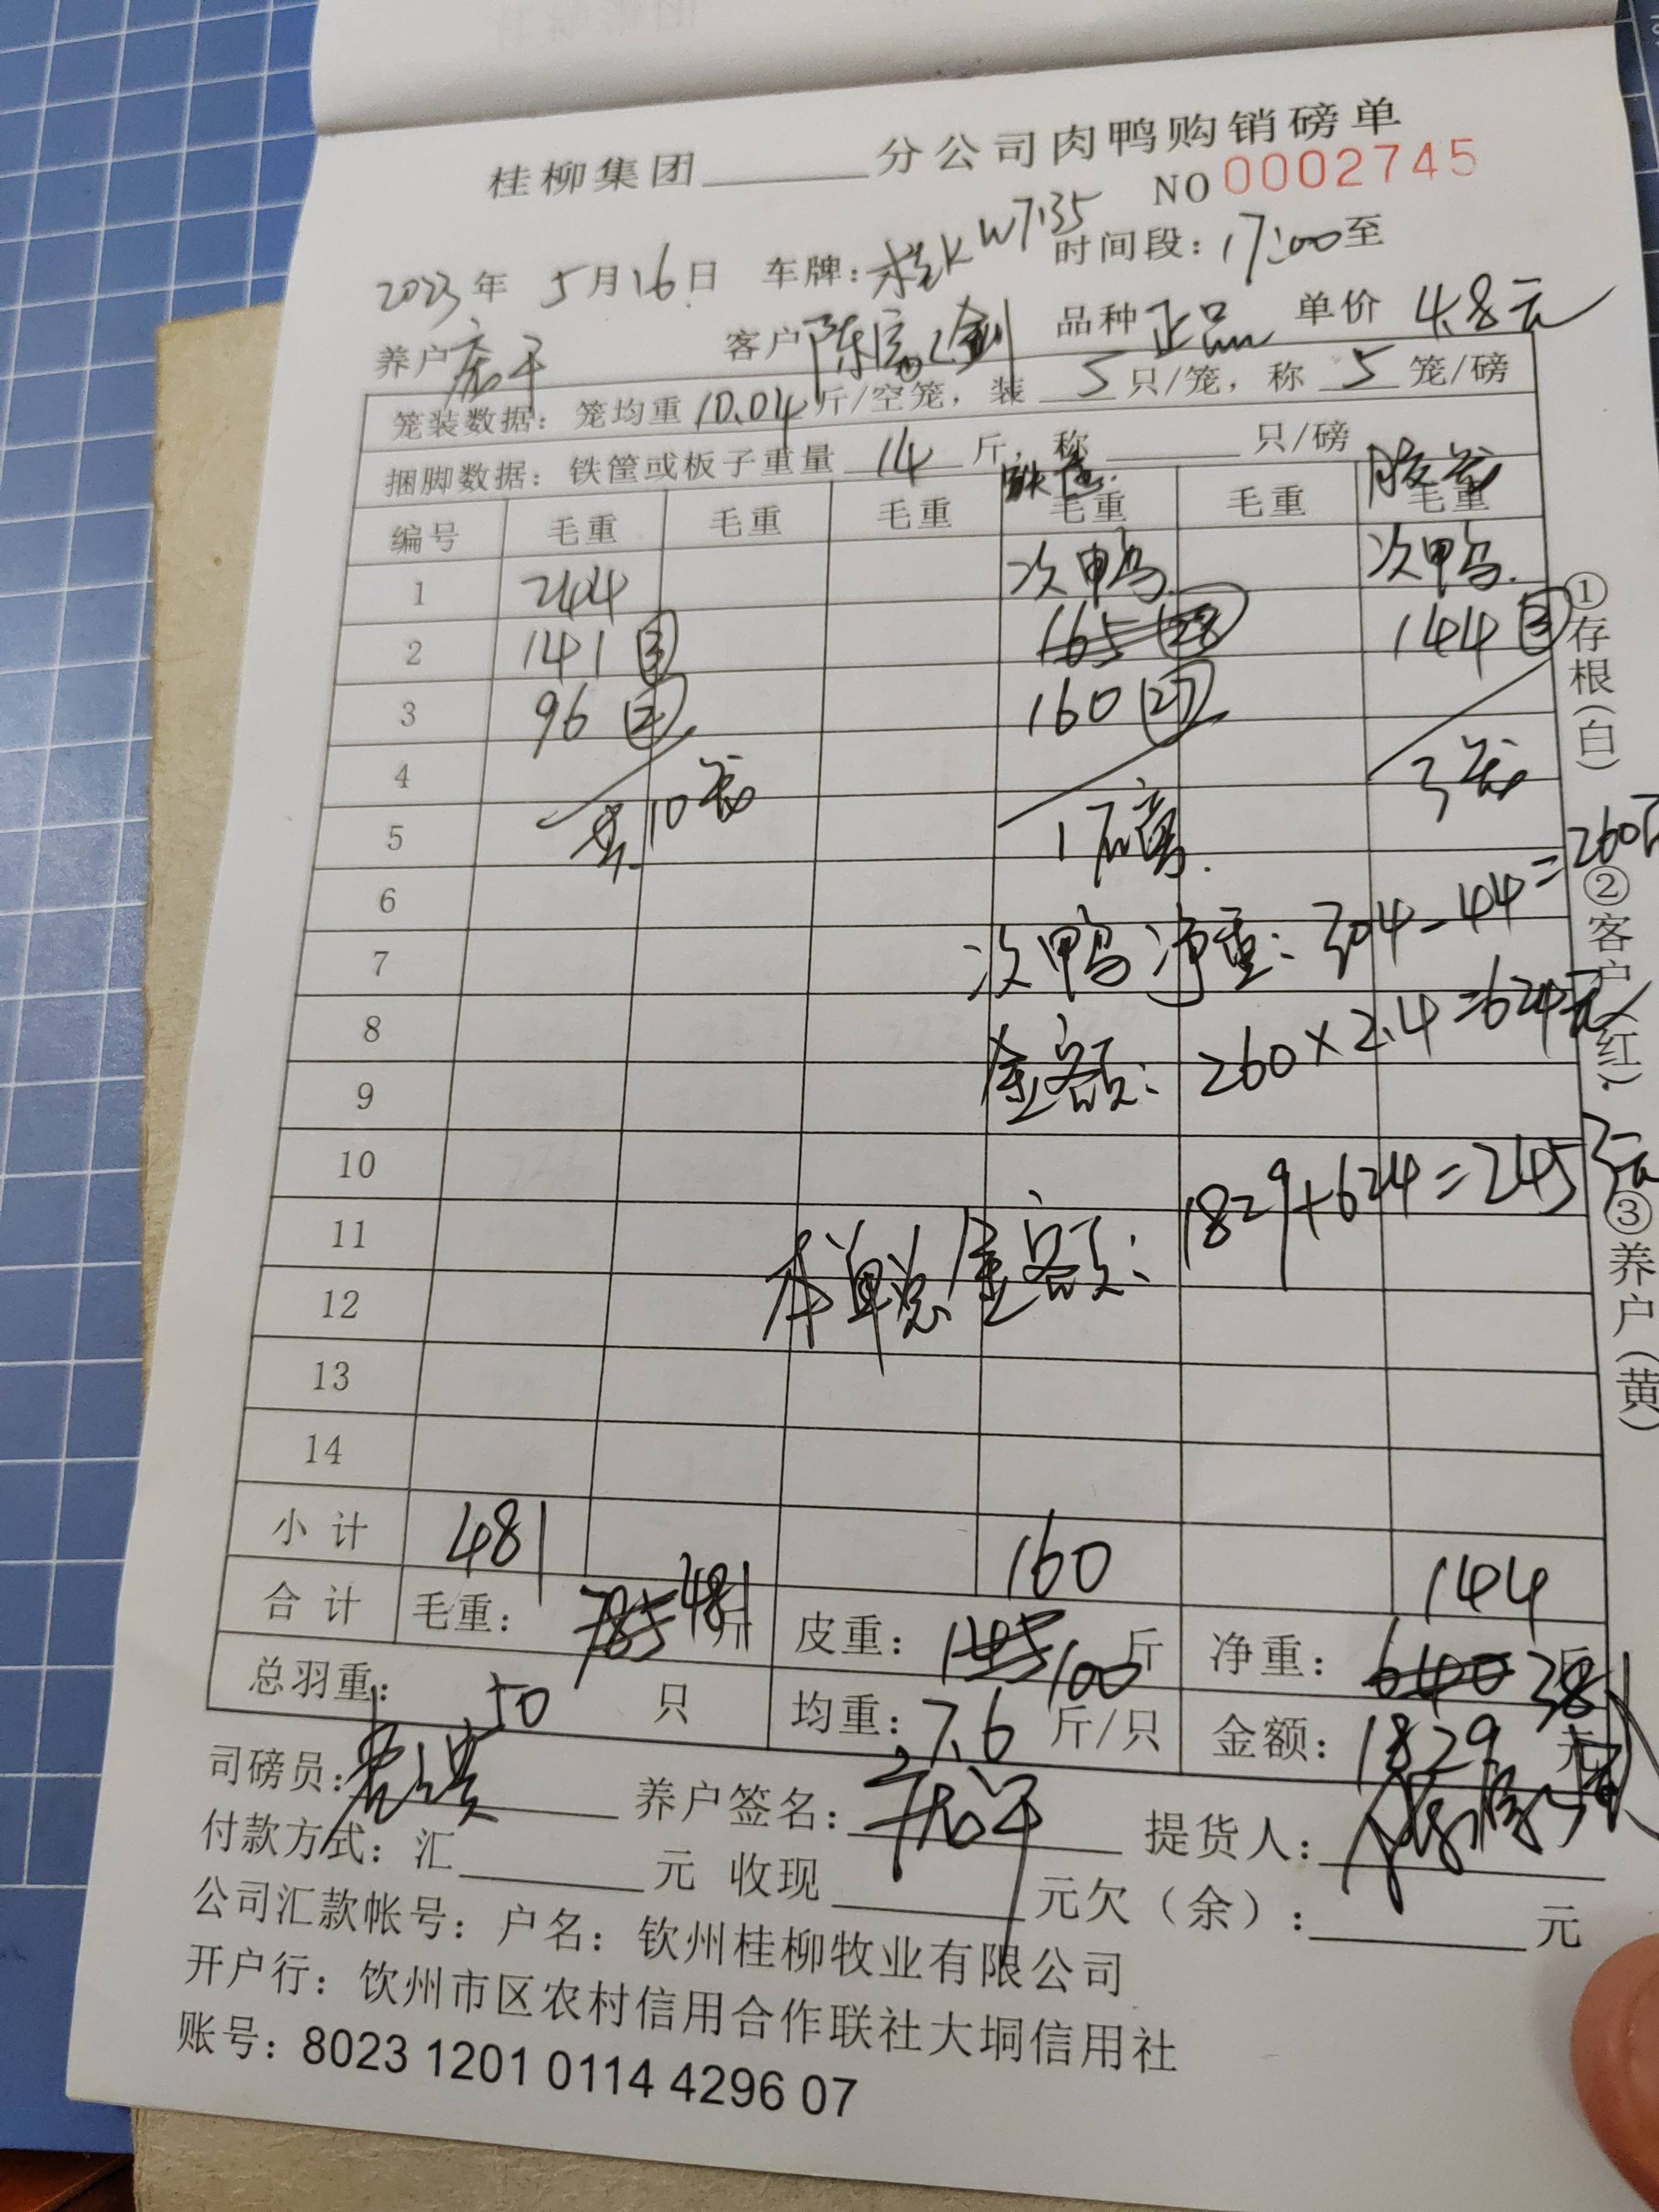 桂柳集团______分公司肉鸭购销磅单
NO 0002745
2023年 5月16日 车牌:桂KW7135 时间段:17:00至
养户 客户 品种 正品 单价 4.8元
笼装数据:笼均重 10.04 斤/空笼,装 5 只/笼,称 5 笼/磅
捆脚数据:铁筐或板子重量 14 斤,称______只/磅
铁筐 胶笼
编号 毛重 毛重 毛重 毛重 毛重 毛重
1 244 次鸭 次鸭
2 141 ③ 165 28 144 ③
3 96 ② 160 27
4 共10笼 3笼
5 1磅
6
7 次鸭净重:304-44=260斤
8
9 金额:260×2.4=624元
10
11 本单总金额:1829+624=2453元
12
13
14
小计 481 160 144
合计 毛重:785 481斤 皮重:145 100斤 净重:640 381斤
总羽重:50 只 均重:7.6 斤/只 金额:1829 元
司磅员: 养户签名: 提货人:
付款方式:汇______元 收现______元欠(余):______元
公司汇款帐号:户名:钦州桂柳牧业有限公司
开户行:饮州市区农村信用合作联社大垌信用社
账号:8023 1201 0114 4296 07
①存根(白)②客户(红)③养户(黄)